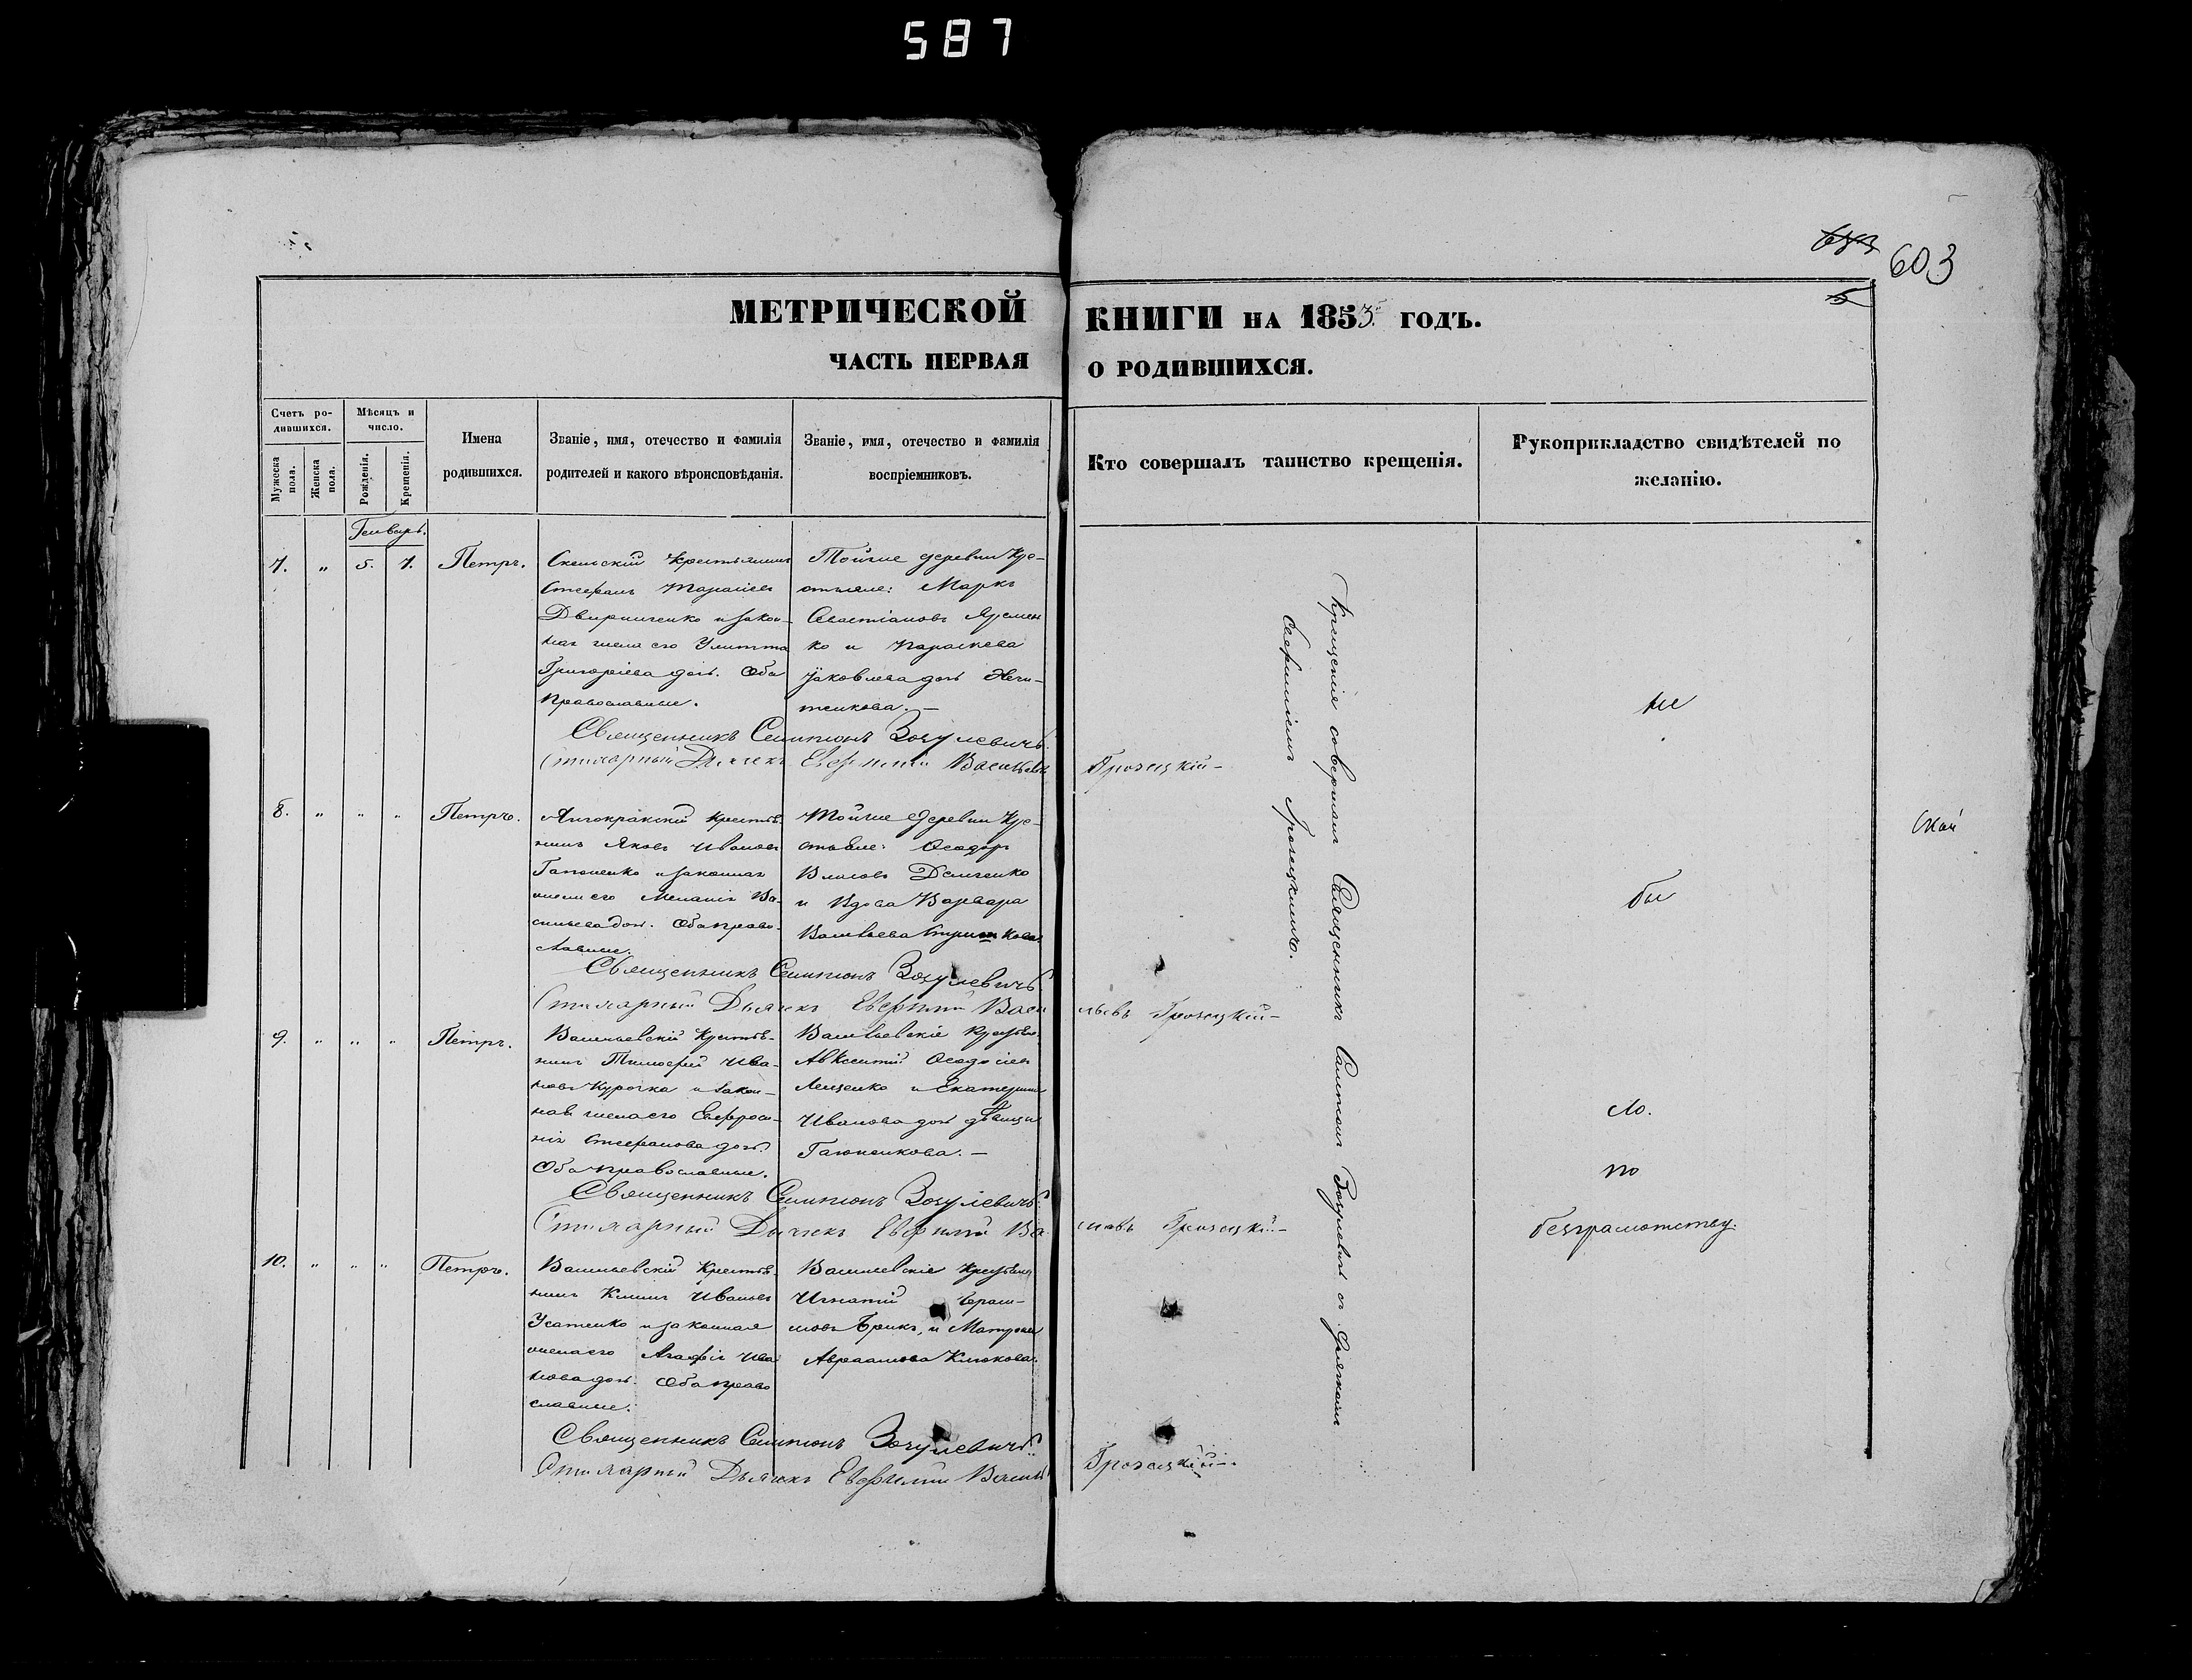 587
603
5
МЕТРИЧЕСКОЙ КНИГИ НА 1853й ГОДЪ.
ЧАСТЬ ПЕРВАЯ О РОДИВШИХСЯ.
Счетъ ро-
дившихся.
Мужеска пола.
Женска пола.
Мѣсяцъ и
число.
Рожденія.
Крещенія.
Имена
родившихся.
Званіе, имя, отечество и фамилія
родителей и какого вѣроисповѣданія.
Званіе, имя, отечество и фамилія
воспріемниковъ.
Кто совершалъ таинство крещенія.
Рукоприкладство свидѣтелей по
желанію.
Генварь.
7. „ 5. 7. Петръ.
Скельскій крестьянинъ
Стефанъ Тарасіевъ
Двирниченко и закон-
ная жена его Улитта
Григоріева дочь. Оба
православные.
Тойже деревни кре-
стьяне: Маркъ
Севастіановъ Яремен
ко и Параскева
Яковлева дочь Нечи-
тенкова. —
Священникъ Сампсонъ Зогулевичъ.
Стихарный Дьячекъ Евфимій Васильевъ Грозецкій-
8. „ „ „ Петръ.
Янчокракскій крестья
нинъ Яковъ Ивановъ
Гапоненко и законная
жена его Меланія Ва-
сильева доч. Оба право-
славные.
Тойже деревни кре-
стьяне: Ѳеодоръ
Власовъ Демченко
и Вдова Варвара
Васильева
Священникъ Сампсонъ Зогулевичъ.
Стихарный Дьячекъ Евфимій Васи льевъ Грозецкій-
9. „ „ „ Петръ.
Васильевскій крестья-
нинъ Тимоѳей Ива-
новъ Курочка и закон-
ная жена его Евфроси-
нія Стефанова дочь.
Оба православные.
Васильевскіе крестьяне
Авксентій Ѳеодосіевъ
Лещенко и Екатерина
Иванова дочь дѣвица
Гапоненкова. —
Священникъ Сампсонъ Зогулевичъ.
Стихарный Дьячекъ Евфимій Ва Грозецкій-
10. „ „ „ Петръ.
Васильевскій крестья-
нинъ Климъ Ивановъ
Усатенко и законная
жена его Агафія Ива
нова доч. Оба право
славные.
Васильевскіе крестьяне
Игнатій
Брикъ, и Матрона
Авраамова Клюкова
Священникъ Сампсонъ Зогулевичъ.
Стихарный Дьячекъ Евфимій Васильевъ Грозецкій-
Крещенія совершалъ Священникъ Сампсонъ Зогулевичъ съ Дьячкомъ
Евфиміемъ Грозецкимъ.
не
бы
ло.
по
безграмотству.